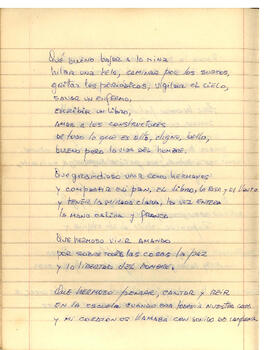 Qué bueno bajar a la mina
hilar una tela, caminar por los surcos,
gritar los periódicos, vigilar el cielo,
sanar un enfermo,
escribir un libro,
amar a los constructores
de todo lo que es útil, digno, bello,
bueno para la vida del hombre.
Que grandioso vivir como hermanos
y compartir el pan, el libro, la risa y el llanto
y tener la mirada clara, la voz entera
la mano cálida y franca
Que hermoso vivir amando
por sobre todas las cosas la paz
y la libertad del hombre.
Que hermoso pensar, cantar y reir
en la escuela cuando era toda nuestra casa
y mi corazón es llamaba con sonido de campana